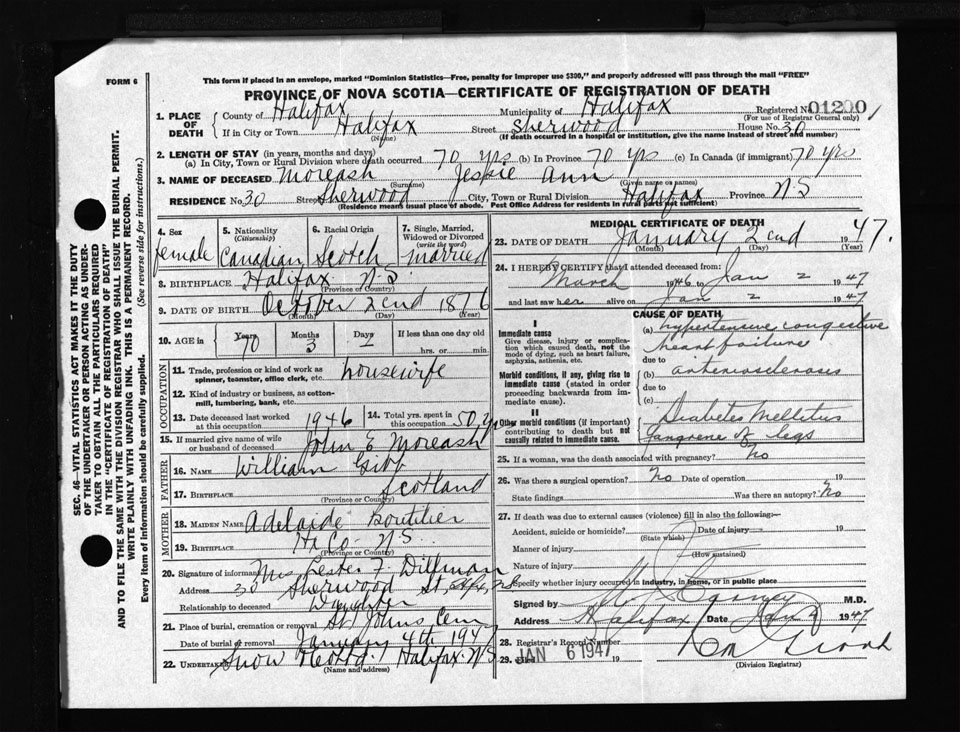 FORM 6
This form if placed in an envelope, marked "Dominion Statistics—Free, penalty for improper use $300," and properly addressed will pass through the mail "FREE"
PROVINCE OF NOVA SCOTIA—CERTIFICATE OF REGISTRATION OF DEATH
SEC. 46—VITAL STATISTICS ACT MAKES IT THE DUTY
OF THE UNDERTAKER OR PERSON ACTING AS UNDER-
TAKER TO OBTAIN ALL THE PARTICULARS REQUIRED
IN THE "CERTIFICATE OF REGISTRATION OF DEATH"
AND TO FILE THE SAME WITH THE DIVISION REGISTRAR WHO SHALL ISSUE THE BURIAL PERMIT.
WRITE PLAINLY WITH UNFADING INK. THIS IS A PERMANENT RECORD.
Every item of information should be carefully supplied. (See reverse side for instructions.)
1. PLACE OF DEATH County of Halifax Municipality of Halifax Registered No. 01200
(For use of Registrar General only)
If in City or Town Halifax (Name) Street Sherwood House No. 30
(If death occurred in a hospital or institution, give the name instead of street and number)
2. LENGTH OF STAY (in years, months and days)
(a) In City, Town or Rural Division where death occurred 70 yrs (b) In Province 70 yrs (c) In Canada (if immigrant) 70 yrs
3. NAME OF DECEASED Moreash Jessie Ann
(Surname) (Given name or names)
RESIDENCE No. 30 Street Sherwood City, Town or Rural Division Halifax Province N S
(Residence means usual place of abode. Post Office Address for residents in rural parts not sufficient)
4. Sex female
5. Nationality (Citizenship) Canadian
6. Racial Origin Scotch
7. Single, Married, Widowed or Divorced (write the word) married
8. BIRTHPLACE Halifax N.S.
(Province or Country)
9. DATE OF BIRTH October 2cnd 1876
(Month) (Day) (Year)
10. AGE in Years 70 Months 3 Days If less than one day old
hrs. or min.
OCCUPATION
11. Trade, profession or kind of work as housewife
spinner, teamster, office clerk, etc.
12. Kind of industry or business, as cotton-
mill, lumbering, bank, etc.
13. Date deceased last worked at this occupation 1946
14. Total yrs. spent in this occupation 50 yrs
15. If married give name of wife or husband of deceased John E Moreash
FATHER
16. NAME William Gibb
17. BIRTHPLACE Scotland
(Province or Country)
MOTHER
18. MAIDEN NAME Adelaide Boutilier
19. BIRTHPLACE Hx Co. N.S.
(Province or Country)
20. Signature of informant Mrs Lester F Dillman
Address 30 Sherwood St,
Relationship to deceased Daughter
21. Place of burial, cremation or removal St Johns Cem
Date of burial or removal January 4th 1947
22. UNDERTAKER Snow Halifax N S
(Name and address)
MEDICAL CERTIFICATE OF DEATH
23. DATE OF DEATH January 2cnd 1947.
(Month) (Day) (Year)
24. I HEREBY CERTIFY that I attended deceased from:
March 1946 to Jan 2 1947
and last saw her alive on Jan 2 1947
CAUSE OF DEATH
I
Immediate cause
Give disease, injury or complica-
tion which caused death, not the
mode of dying, such as heart failure,
asphyxia, asthenia, etc.
(a) hypertensive congestive
heart failure
due to
Morbid conditions, if any, giving rise to
immediate cause (stated in order
proceeding backwards from im-
mediate cause).
(b) arteriosclerosis
due to
(c)
II
Other morbid conditions (if important)
contributing to death but not
causally related to immediate cause.
Diabetes Mellitus
Gangrene of legs
25. If a woman, was the death associated with pregnancy? No
26. Was there a surgical operation? No Date of operation 19
State findings Was there an autopsy? No
27. If death was due to external causes (violence) fill in also the following:—
Accident, suicide or homicide? Date of injury 19
(State which)
Manner of injury
(How sustained)
Nature of injury
Specify whether injury occurred in industry, in home, or in public place
Signed by M.D.
Address Halifax Date Jan 1947
28. Registrar's Record Number
29. JAN 6 1947 19
(Division Registrar)